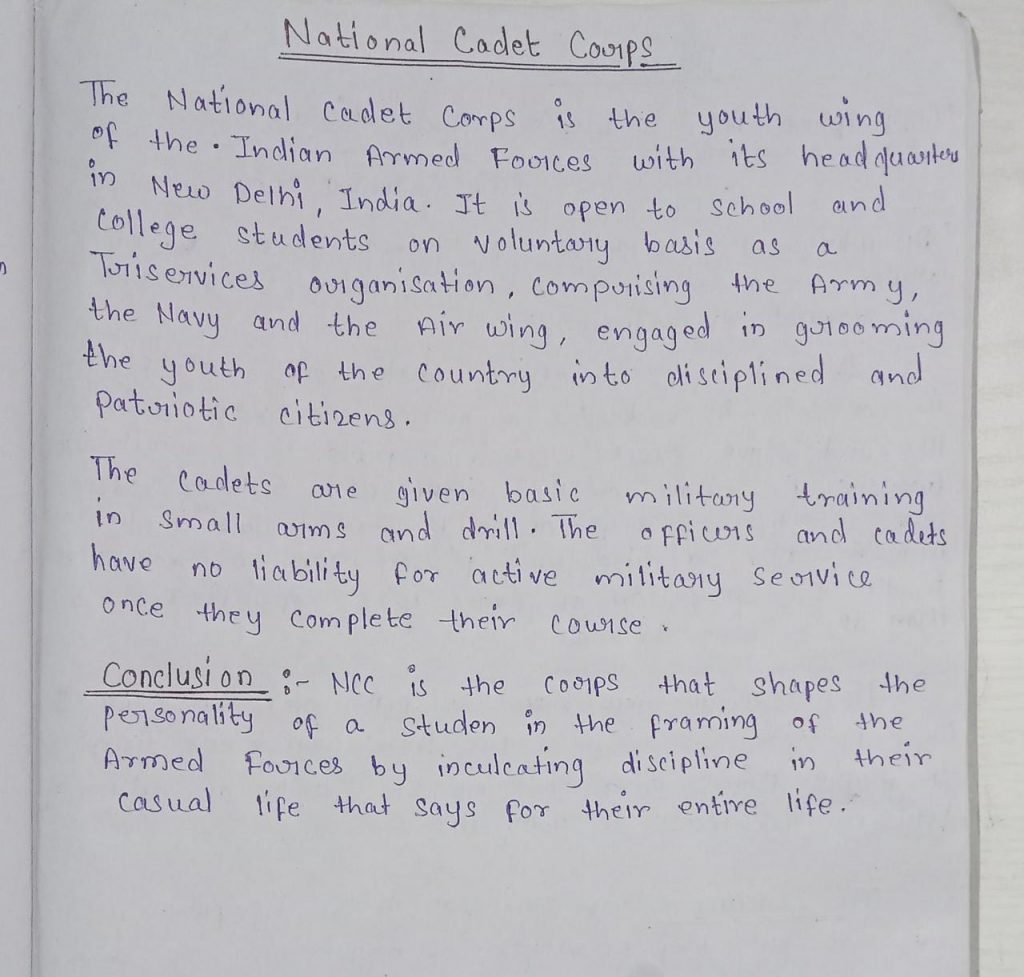 National Cadet Corps
The National Cadet Corps is the youth wing
of the . Indian Armed Forces with its headquarters
in New Delhi, India. It is open to school and
College students on voluntary basis as a
Triservices organisation, comprising the Army,
the Navy and the Air wing, engaged in grooming
the youth of the country into disciplined and
patriotic citizens.
The cadets are given basic military training
in small arms and drill. The officers and cadets
have no liability for active military service
once they complete their course.
Conclusion :- NCC is the corps that shapes the
personality of a studen in the framing of the
Armed Forces by inculcating discipline in their
casual life that says for their entire life.